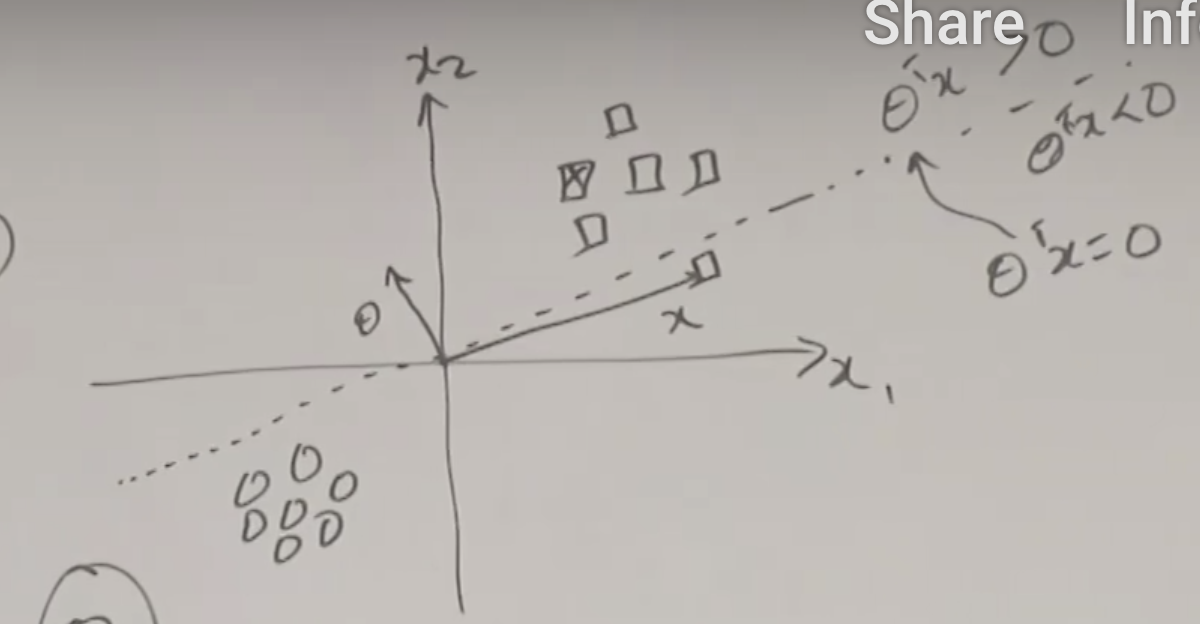 Share Inf
x₂
θᵀx > 0
θᵀx < 0
θᵀx = 0
θ
x
x₁